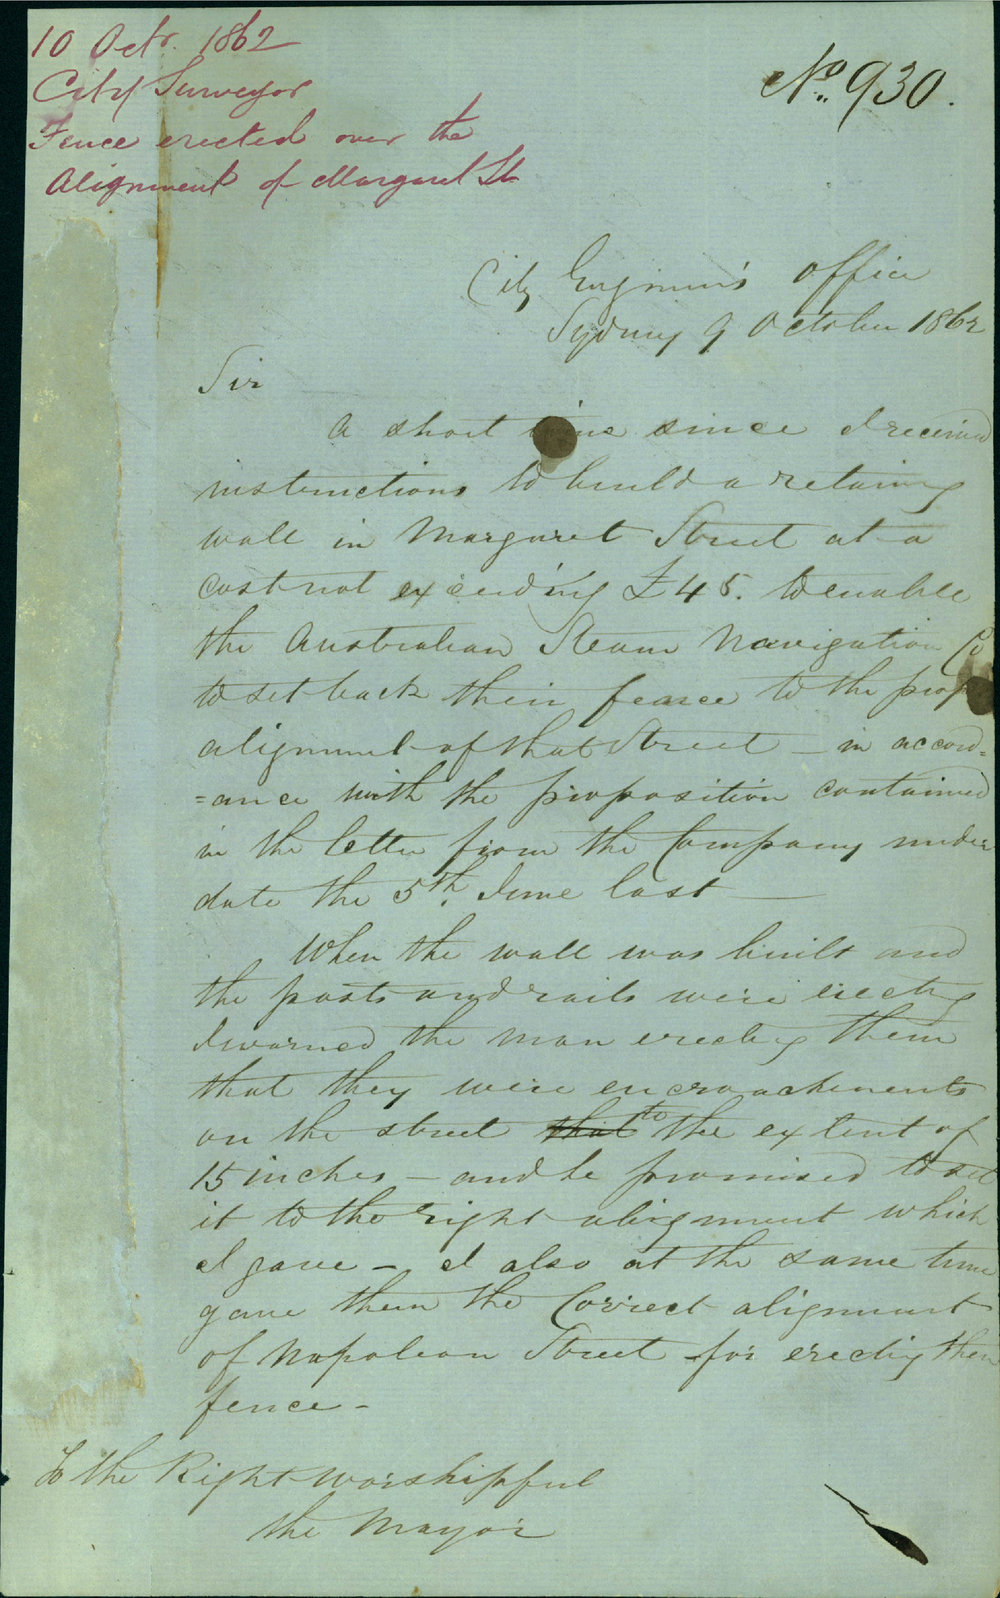 10 Octr. 1862
City Surveyor
Fence erected over the
Alignment of Margaret St
No. 930.
City Engineer's Office
Sydney 9 October 1862
Sir
A short time since I received
instructions to build a retaining
wall in Margaret Street at a
cost not exceeding £45. to enable
the Australian Steam Navigation Co
to set back their fence to the prop
alignment of that Street - in accord=
=ance with the proposition contained
in the letter from the Company under
date the 5th. June last
When the wall was built and
the posts and rails were erecting
I warned the man erecting them
that they were encroachments
on the street that to the extent of
15 inches - and he promised to set
it to the right alignment which
I gave - I also at the same time
gave them the Correct alignment
of Napoleon Street for erecting their
fence -
To the Right Worshipful
the Mayor